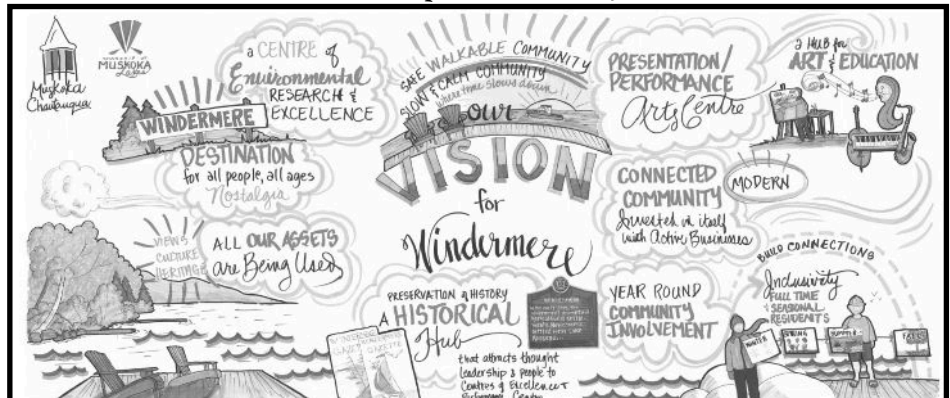 Muskoka
Chautauqua
TOWNSHIP OF
MUSKOKA
Lakes
a CENTRE of
Environmental
RESEARCH &
EXCELLENCE
WINDERMERE
DESTINATION
for all people, all ages
Nostalgia
VIEWS
CULTURE
HERITAGE
ALL OUR ASSETS
are Being Used
SAFE WALKABLE COMMUNITY
SLOW & CALM COMMUNITY
where time slows down
our
VISION
for
Windermere
PRESERVATION of HISTORY
A HISTORICAL
Hub
that attracts thought
leadership & people to
Centres of Excellence &
PRESENTATION/
PERFORMANCE
Arts Centre
a HUB for
ART & EDUCATION
CONNECTED
COMMUNITY
Invested in itself
with Active Businesses
MODERN
YEAR ROUND
COMMUNITY
INVOLVEMENT
BUILD CONNECTIONS
Inclusivity
FULL TIME
& SEASONAL
RESIDENTS
WINTER
SPRING
SUMMER